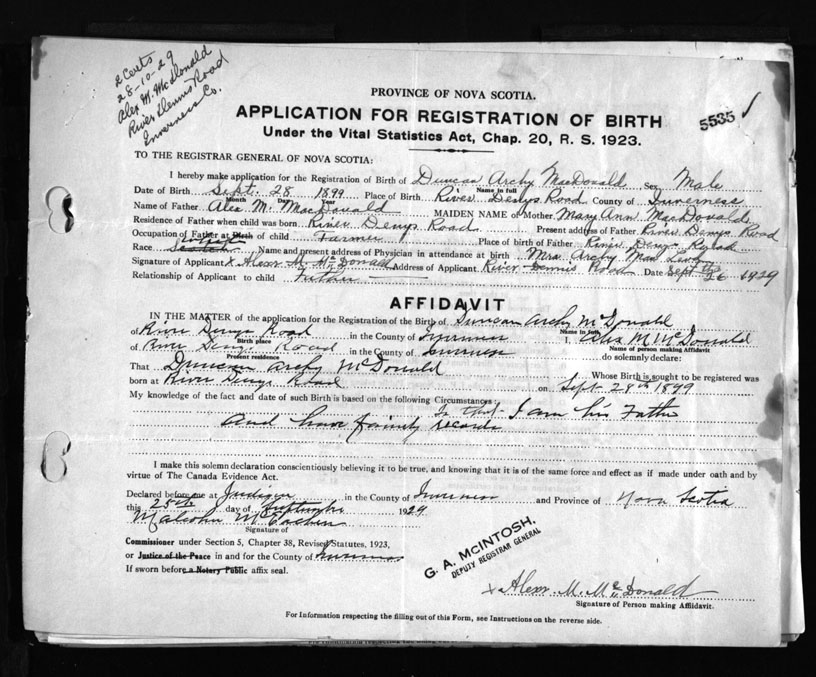 2 Certs
28-10-29
Alex M. McDonald
River Dennis Road
Inverness Co.
5535
PROVINCE OF NOVA SCOTIA.
APPLICATION FOR REGISTRATION OF BIRTH
Under the Vital Statistics Act, Chap. 20, R. S. 1923.
TO THE REGISTRAR GENERAL OF NOVA SCOTIA:
I hereby make application for the Registration of Birth of Duncan Archy MacDonald Sex Male
Name in full
Date of Birth Sept. 28 1899 Place of Birth River Denys Road County of Inverness
Month Day Year
Name of Father Alex M. MacDonald MAIDEN NAME of Mother Mary Ann MacDonald
Residence of Father when child was born River Denys Road Present address of Father River Denys Road
Occupation of Father at Birth of child Farmer Place of birth of Father River Denys Road
Race Scotch Name and present address of Physician in attendance at birth Mrs. Archy
Signature of Applicant X Alexr M. McDonald Address of Applicant River Dennis Road Date Sept 26 1929
Relationship of Applicant to child Father
AFFIDAVIT
IN THE MATTER of the application for the Registration of the Birth of Duncan Archy McDonald
Name in full
of River Denys Road in the County of Inverness I, Alex M McDonald
Birth place Name of person making Affidavit
of River Denys Road in the County of Inverness do solemnly declare:
Present residence
That Duncan Archy McDonald Whose Birth is sought to be registered was
born at River Denys Road on Sept. 28th 1899
My knowledge of the fact and date of such Birth is based on the following Circumstances:
Is that I am his Father
and have family records
I make this solemn declaration conscientiously believing it to be true, and knowing that it is of the same force and effect as if made under oath and by
virtue of The Canada Evidence Act.
Declared before me at Judique in the County of Inverness and Province of Nova Scotia
this 25th day of September 1929
Malcolm McEachern
Signature of
Commissioner under Section 5, Chapter 38, Revised Statutes, 1923,
or Justice of the Peace in and for the County of Inverness
If sworn before a Notary Public affix seal.
G. A. MCINTOSH,
DEPUTY REGISTRAR GENERAL
X Alexr. M. McDonald
Signature of Person making Affidavit.
For Information respecting the filling out of this Form, see Instructions on the reverse side.